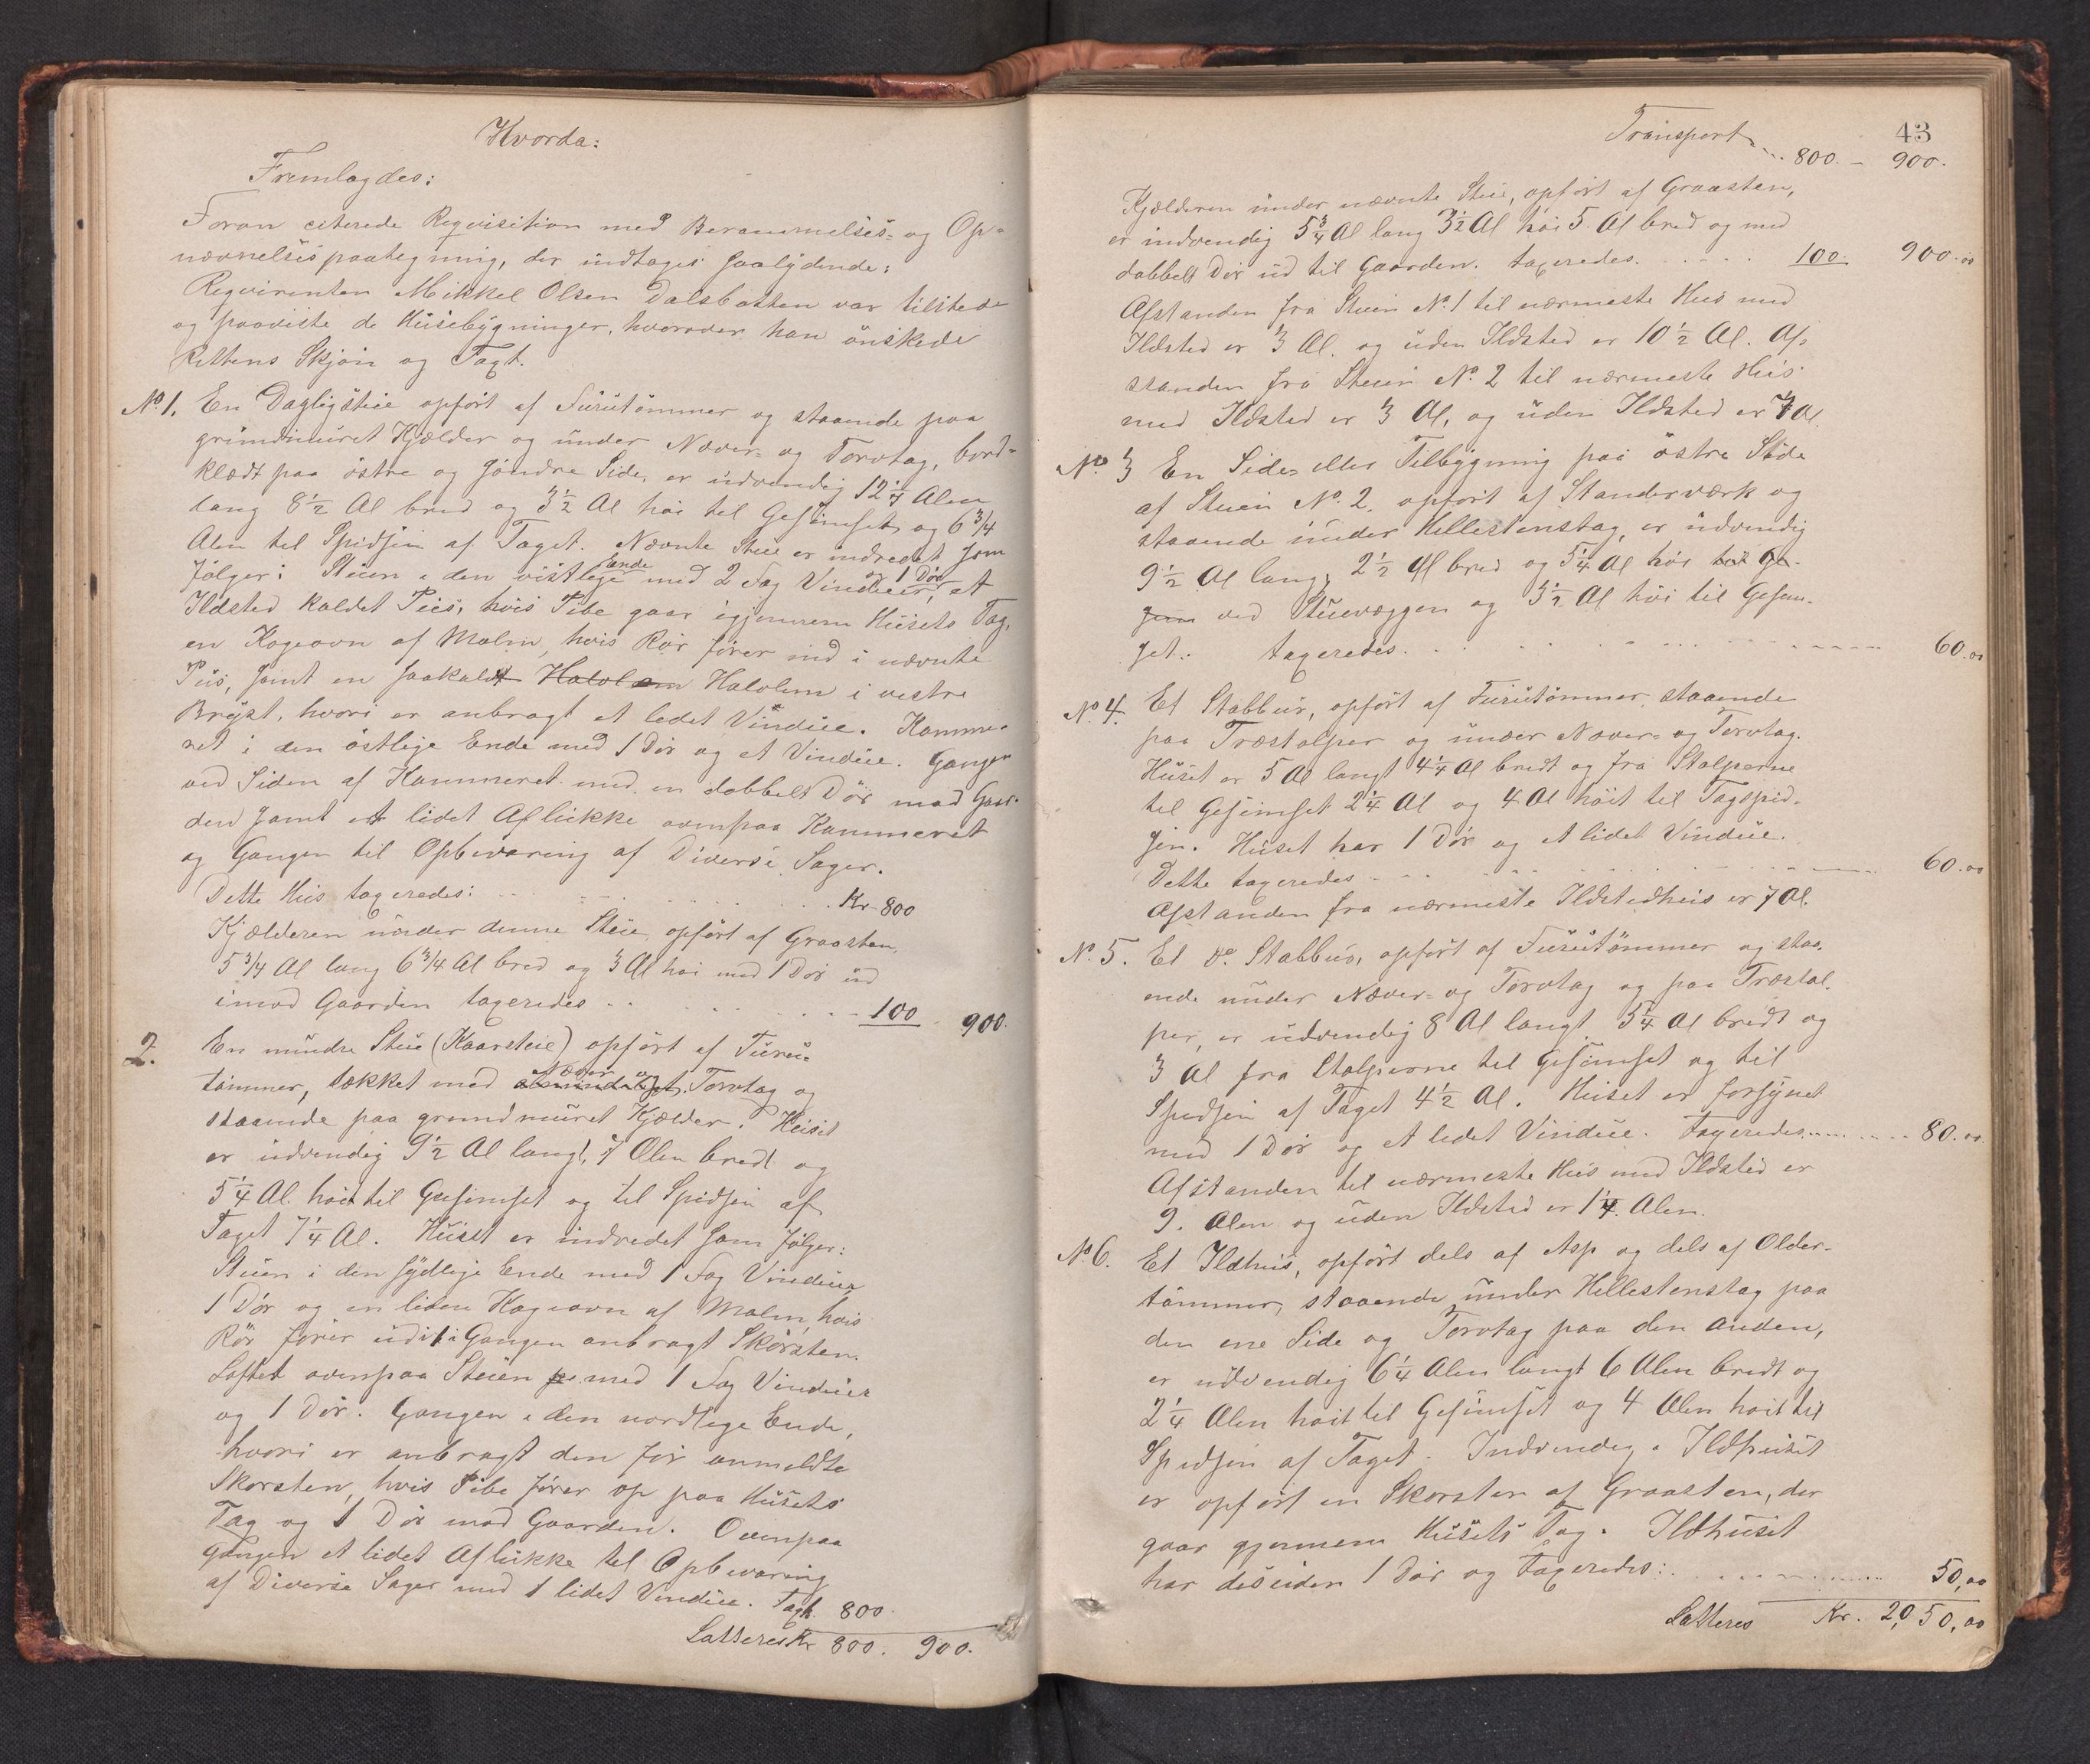 Hvorda:
Fremlagdes:
Foran citerede Reqvisition med Berammelses- og Op-
nævnelsespaategning, der indtages saalydende:
Reqvirenten Mikkel Olsen Dalsbotten var tilstede
og paaviste de Huusebygninger, hvorover han önskede
Rettens Skjön og Taxt.
No 1. En Dagligstue opfört af Furutömmer og staaende paa
grundmuret Kjelder og under Næver- og Torvtag, bord-
klædt paa östre og söndre Side, er udvendig 12 1/4 Alen
lang 8 1/2 Al bred og 3 1/2 Al höi til Gesimset og 6 3/4
Alen til Spidsen af Taget. Nævnte Stue er indredet som
fölger: Stuen i den vestlige Ende med 2 Fag Vinduer, og 1 Dör, et
Ildsted kaldet Peis, hvis Pibe gaar igjennem Husets Tag,
en Kogeovn af Malm, hvis Rör förer ind i nævnte
Peis, samt en saakaldt Halvlem Halvlem i vestre
Bryst, hvori er anbragt et lidet Vindue. Kamme-
ret i den östlige Ende med 1 Dör og et Vindue. Gangen
ved Siden af Kammeret med en dobbelt Dör mod Gaar-
den samt et lidet Aflukke ovenpaa Kammeret
og Gangen til Opbevaring af Diverse Sager.
Dette Hus taxeredes: Kr 800
Kjælderen under denne Stue, opfört af Graasten,
5 3/4 Al lang 6 3/4 Al bred og 3 Al höi med 1 Dör ud
imod Gaarden taxeredes 100 900.
2. En mindre Stue (Kaarstue) opfört af Furu-
tömmer, tækket med almindeligt Næver og Torvtag og
staaende paa grundmuret Kjælder. Huset
er udvendig 9 1/2 Al langt, 7 Alen bredt og
5 1/4 Al. höit til Gesimset og til Spidsen af
Taget 7 1/4 Al. Huset er indredet som fölger:
Stuen i den sydlige Ende med 1 Fag Vinduer
1 Dör og en liden Kogeovn af Malm, hvis
Rör förer ud i i Gangen anbragt Skorsten.
Loftet ovenpaa Stuen med 1 Fag Vinduer
og 1 Dör. Gangen i den nordlige Ende,
hvori er anbragt den för anmeldte
Skorsten, hvis Pibe förer op paa Husets
Tag og 1 Dör mod Gaarden. Ovenpaa
Gangen et lidet Aflukke til Opbevaring
af Diverse Sager med 1 lidet Vindue. Taxt. 800.
Latteres Kr 800. 900.
43
Transport 800. - 900.
Kjælderen under nævnte Stue, opfört af Graasten,
er indvendig 5 3/4 Al lang 3 1/2 Al höi 5 Al bred og med
dobbelt Dör ud til Gaarden. taxeredes. 100. 900.00
Afstanden fra Stuen No. 1 til nærmeste Hus med
Ildsted er 3 Al. og uden Ildsted er 10 1/2 Al. Af-
standen fra Stuen No. 2 til nærmeste Hus
med Ildsted er 3 Al, og uden Ildsted er 7 Al.
No 3 En Side- eller Tilbygning paa östre Side
af Stuen No. 2. opfört af Standerværk og
staaende under Hellestenstag, er udvendig
9 1/2 Al lang, 2 1/2 Al bred og 5 1/4 Al höi til Ge-
sim ved Stuevæggen og 3 1/2 Al höi til Gesim-
set. taxeredes. 60.00
No 4. Et Stabbur, opfört af Furutömmer, staaende
paa Træstolper og under Næver- og Torvtag.
Huset er 5 Al langt 4 1/4 Al bredt og fra Stolperne
til Gesimset 2 1/4 Al og 4 Al höit til Tagspid-
sen. Huset har 1 Dör og et lidet Vindue.
Dette taxeredes 60.00
Afstanden fra nærmeste Ildstedhus er 7 Al.
No. 5. Et do. Stabbur, opfört af Furutömmer og staa-
ende under Næver- og Torvtag og paa Træstol-
per, er udvendig 8 Al langt 5 1/4 Al bredt og
3 Al fra Stolperne til Gesimset og til
Spidsen af Taget 4 1/2 Al. Huset er forsynet
med 1 Dör og et lidet Vindue. Taxeredes 80.00
Afstanden til nærmeste Hus med Ildsted er
9. Alen og uden Ildsted er 1 1/4 Alen.
No 6. Et Ildhus, opfört dels af Asp og dels af Older-
tömmer, staaende under Hellestenstag paa
den ene Side og Torvtag paa den anden,
er udvendig 6 1/4 Alen langt 6 Alen bredt og
2 1/4 Alen höit til Gesimset og 4 Alen höit til
Spidsen af Taget. Indvendig i Ildhuset
er opfört en Skorsten af Graasten, der
gaar gjennem Husets Tag. Ildhuset
har desuden 1 Dör og taxeredes: 50,00
Latteres Kr. 2,050,00